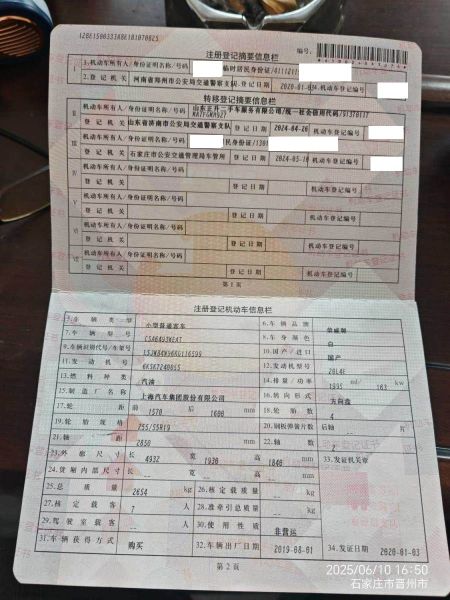 注册登记摘要信息栏
编号:
1.机动车所有人/身份证明名称/号码 临时居民身份证/4111211
2.登记机关 河南省郑州市公安局交通警察支队 登记日期 2020-01-03 4.机动车登记编号
转移登记摘要信息栏
机动车所有人/身份证明名称/号码
登记机关 山东省济南市公安局交通警察支队 登记日期 2024-04-26 机动车登记编号
机动车所有人/身份证明名称/号码 居民身份证/130
登记机关 石家庄市公安交通管理局车管所 登记日期 机动车登记编号
机动车所有人/身份证明名称/号码
登记机关 登记日期 机动车登记编号
机动车所有人/身份证明名称/号码
登记机关 登记日期 机动车登记编号
机动车所有人/身份证明名称/号码
登记机关 登记日期 机动车登记编号
机动车所有人/身份证明名称/号码
登记机关 登记日期 机动车登记编号
第1页
注册登记机动车信息栏
5.车辆类型 小型普通客车 6.车辆品牌 荣威牌
7.车辆型号 8.车身颜色 白
9.车辆识别代号/车架号 10.国产/进口 国产
11.发动机号 12.发动机型号 20L4E
13.燃料种类 汽油 14.排量/功率 1995 ml/ 163 kw
15.制造厂名称 上海汽车集团股份有限公司 16.转向形式 方向盘
17.轮距 前 1570 后 1600 mm 18.轮胎数 4
19.轮胎规格 255/55R19 20.钢板弹簧片数
21.轴距 2850 mm 22.轴数 2
23.外廓尺寸 长 4932 宽 1930 高 1840 mm 33.发证机关章
24.货厢内部尺寸 长 -- 宽 -- 高 -- mm
25.总质量 2654 kg 26.核定载质量 -- kg
27.核定载客 7 人 28.准牵引总质量 -- kg
29.驾驶室载客 -- 人 30.使用性质 非营运
31.车辆获得方式 购买 32.车辆出厂日期 2019-08-01 34.发证日期 2020-01-03
第2页
2025/06/10 16:50
石家庄市晋州市